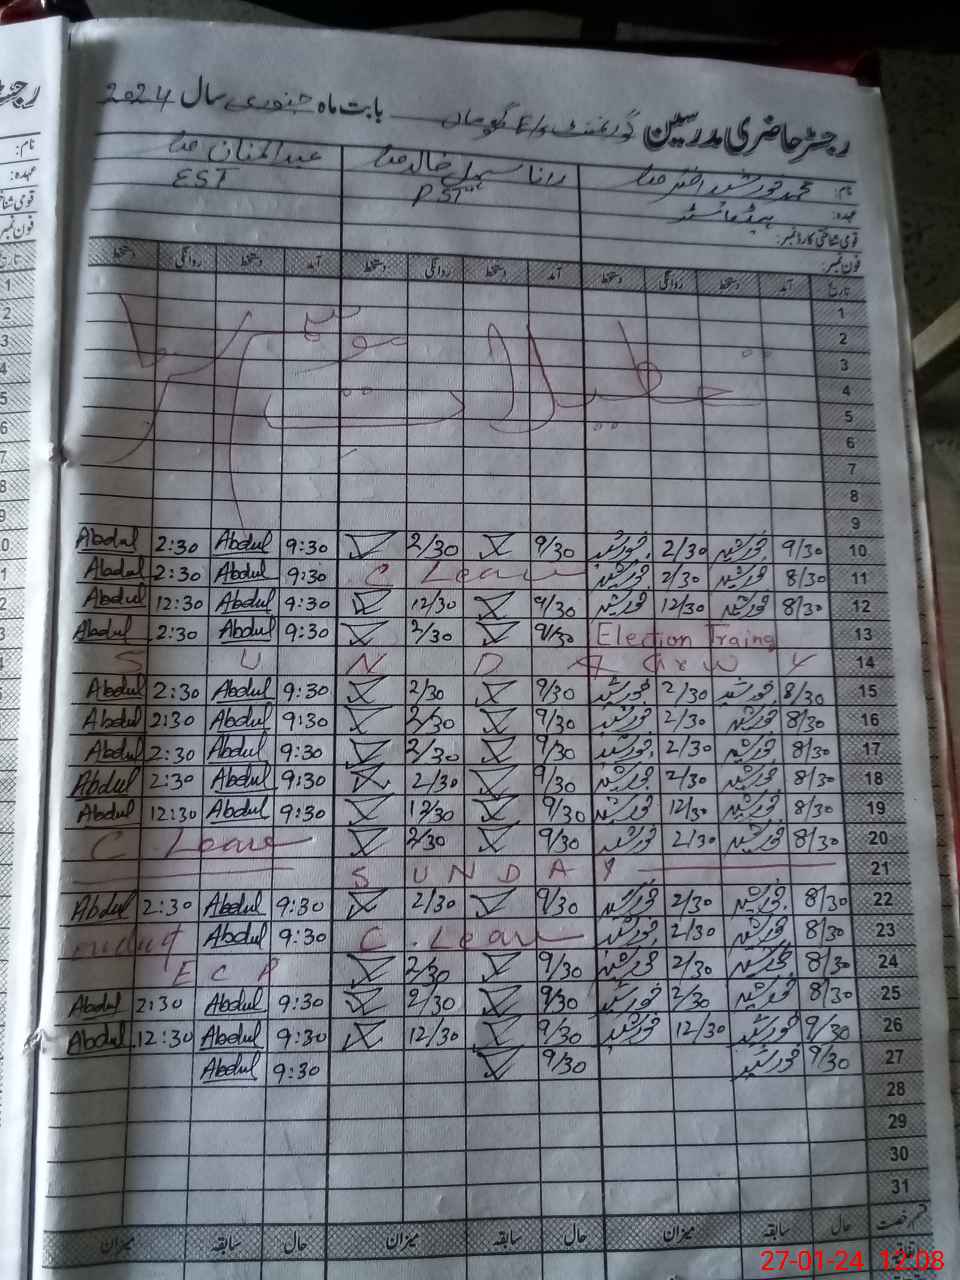 رجسٹر حاضری مدرسین گورنمنٹ بابت ماہ جنوری سال 2024
نام: محمد خورشید اختر رانا سہیل خالد عبدالمنان
عہدہ: ہیڈ ماسٹر PST EST
قومی شناختی کارڈ نمبر:
فون نمبر:
تاریخ آمد دستخط روانگی دستخط آمد دستخط روانگی دستخط آمد دستخط روانگی دستخط
1
2
3
4
5
6
7
8
9
10 9/30 خورشید 2/30 خورشید 9/30 2/30 9:30 Abdul 2:30 Abdul
11 8/30 خورشید 2/30 خورشید C Leave 9:30 Abdul 2:30 Abdul
12 8/30 خورشید 12/30 خورشید 9/30 12/30 9:30 Abdul 12:30 Abdul
13 Election Traing 9/30 2/30 9:30 Abdul 2:30 Abdul
14 S U N D A Y
15 8/30 خورشید 2/30 خورشید 9/30 2/30 9:30 Abdul 2:30 Abdul
16 8/30 خورشید 2/30 خورشید 9/30 2/30 9:30 Abdul 2:30 Abdul
17 8/30 خورشید 2/30 خورشید 9/30 2/30 9:30 Abdul 2:30 Abdul
18 8/30 خورشید 2/30 خورشید 9/30 2/30 9:30 Abdul 2:30 Abdul
19 8/30 خورشید 12/30 خورشید 9/30 12/30 9:30 Abdul 12:30 Abdul
20 8/30 خورشید 2/30 خورشید 9/30 2/30 C Leave
21 S U N D A Y
22 8/30 خورشید 2/30 خورشید 9/30 2/30 9:30 Abdul 2:30 Abdul
23 8/30 خورشید 2/30 خورشید C. Leave 9:30 Abdul
24 8/30 خورشید 2/30 خورشید 9/30 2/30 E C P
25 8/30 خورشید 2/30 خورشید 9/30 2/30 9:30 Abdul 2:30 Abdul
26 9/30 خورشید 12/30 خورشید 9/30 12/30 9:30 Abdul 12:30 Abdul
27 9/30 خورشید 9/30 9:30 Abdul
28
29
30
31
قسم رخصت حال سابقہ میزان حال سابقہ میزان حال سابقہ میزان
27-01-24 12:08